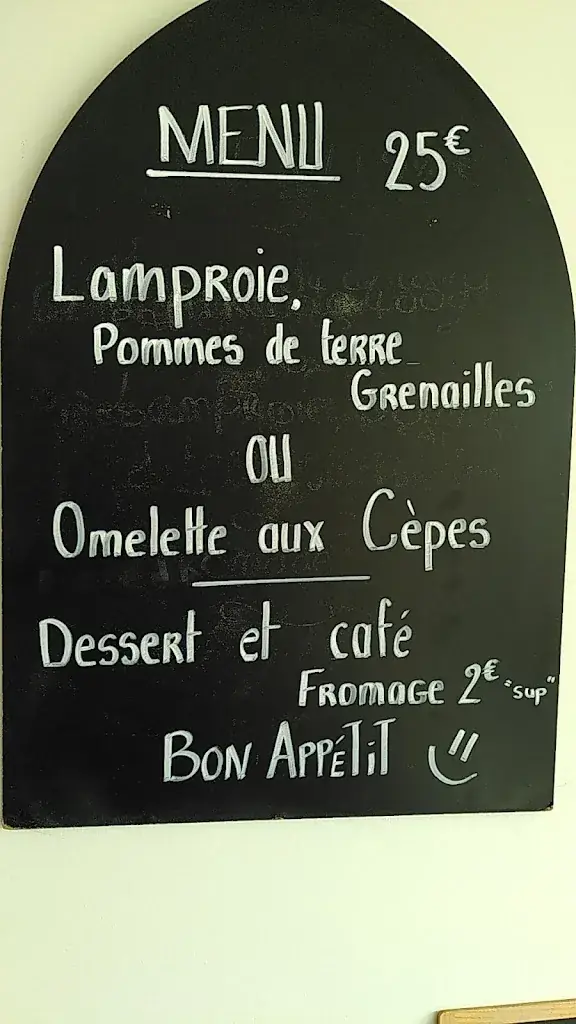 MENU 25€
Lamproie,
Pommes de terre
Grenailles
OU
Omelette aux Cèpes
Dessert et café
Fromage 2€ "sup"
Bon Appétit